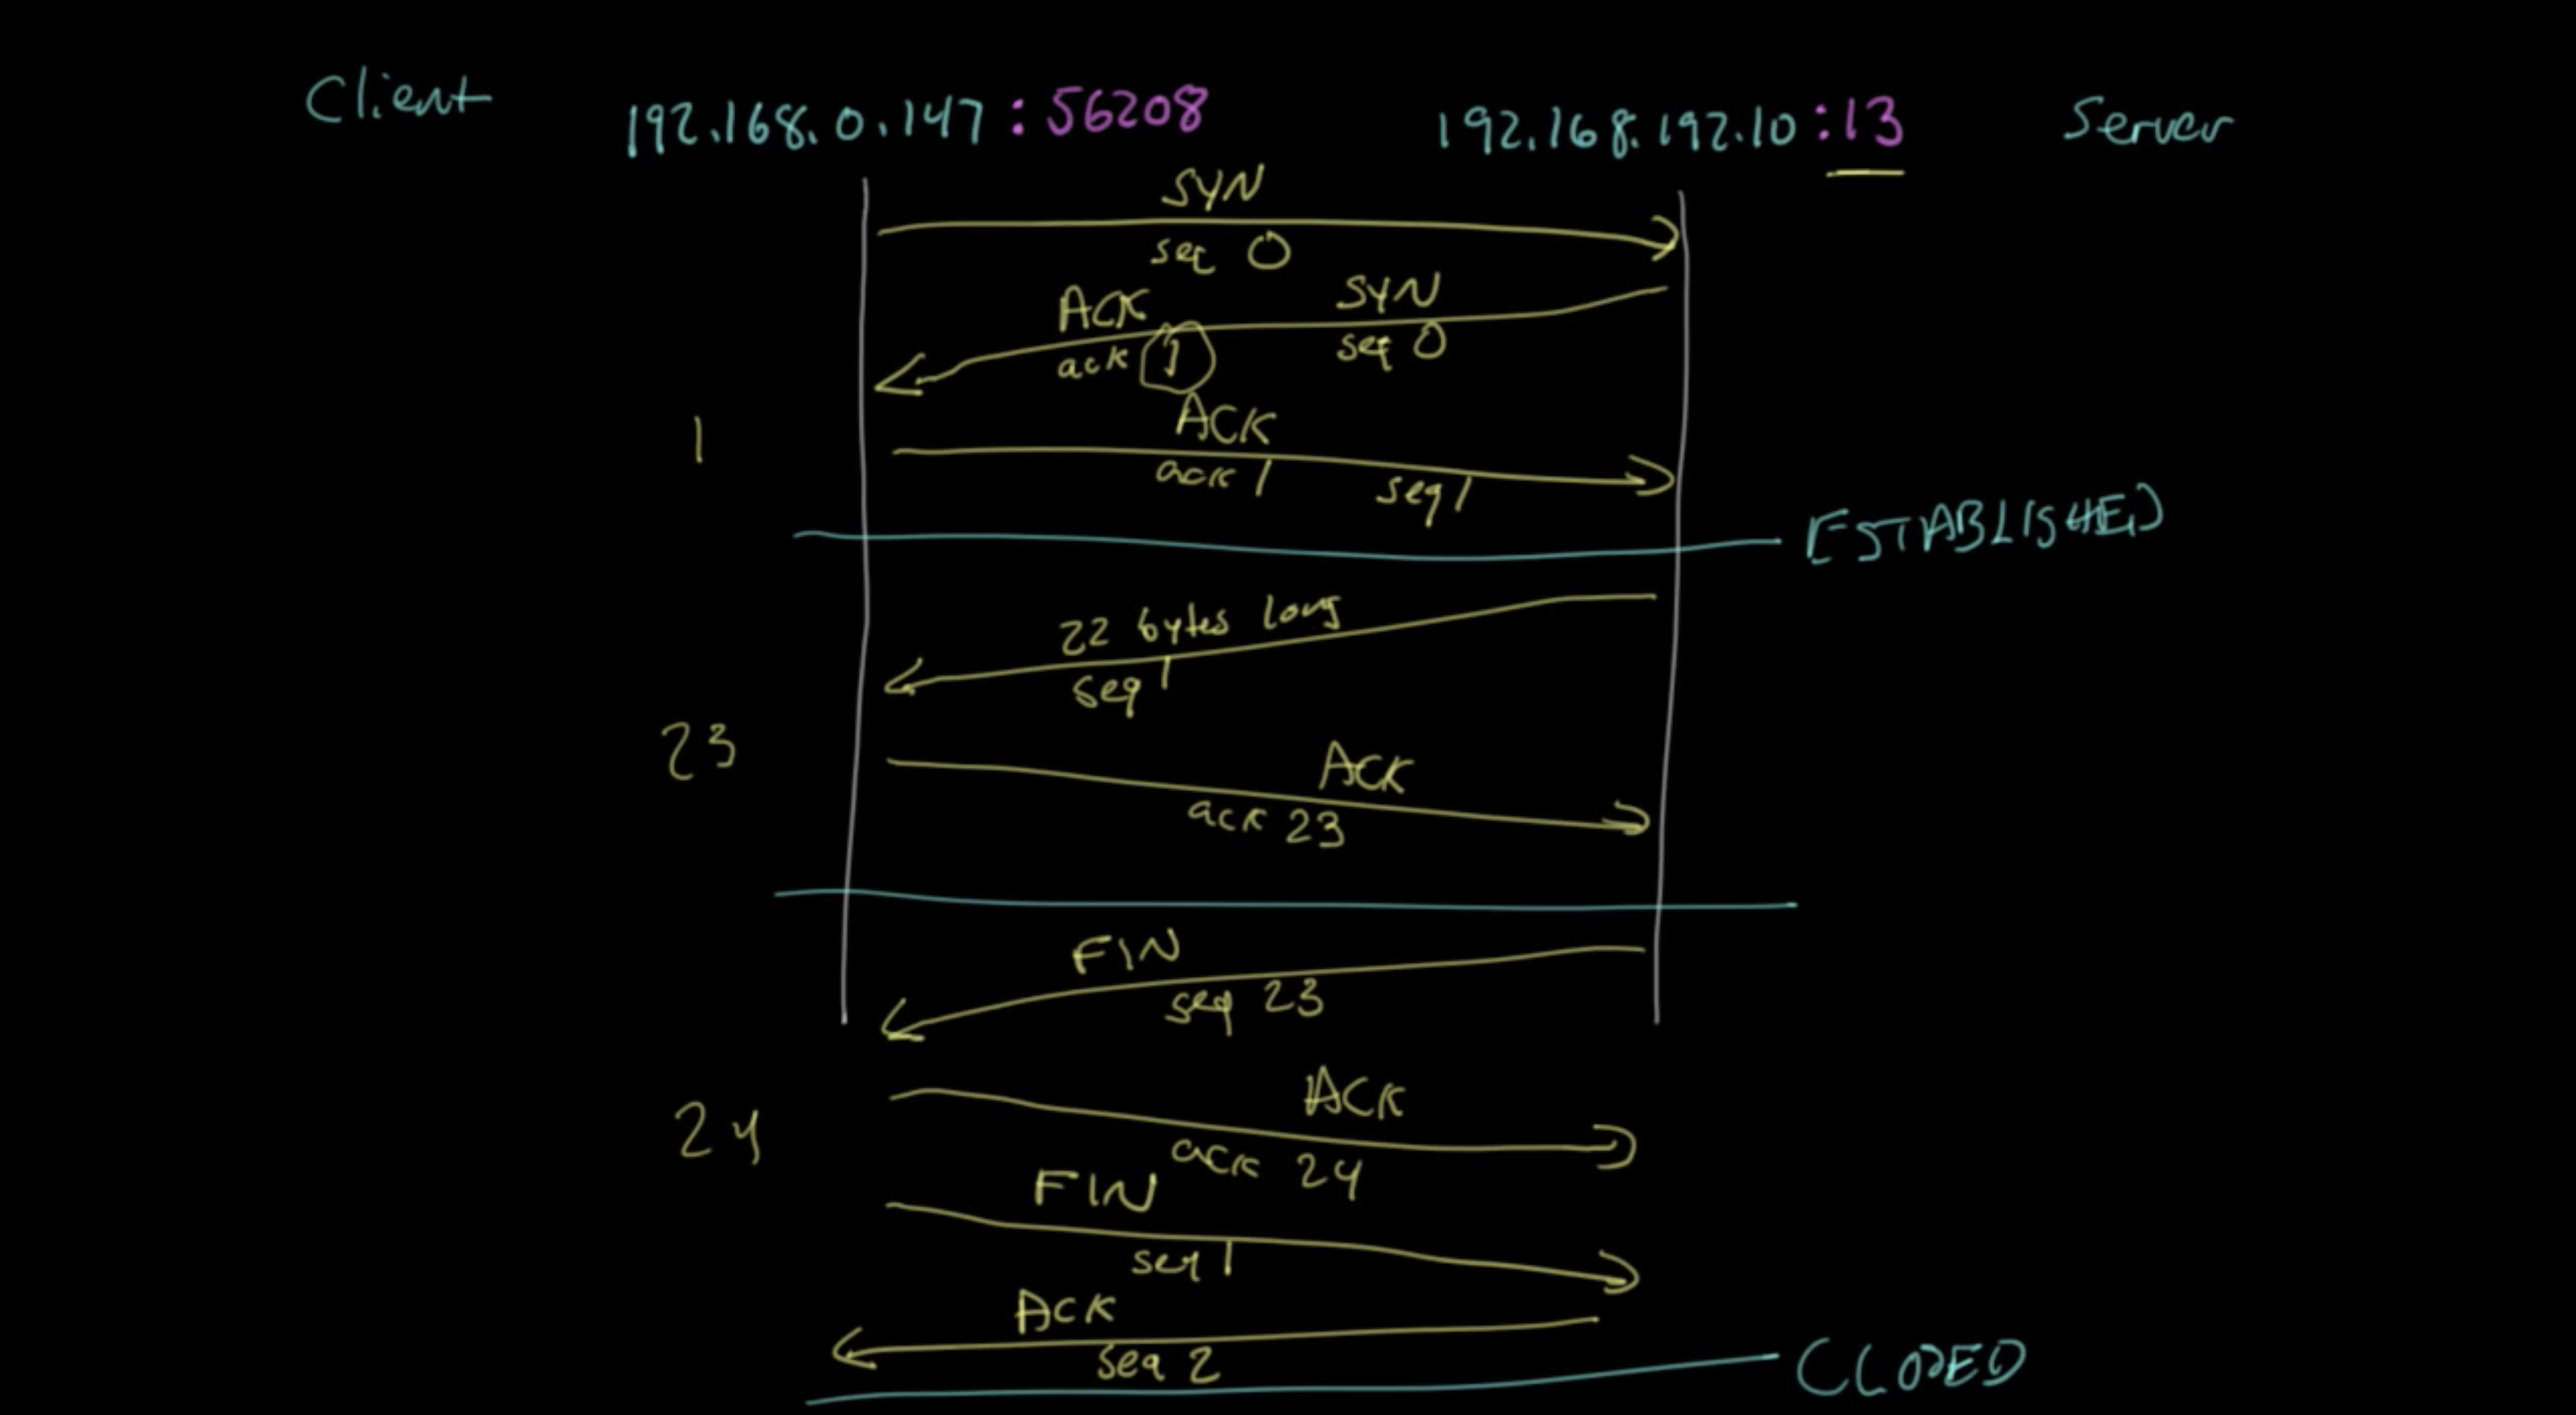 Client 192.168.0.147:56208 192.168.192.10:13 Server
SYN
seq 0
ACK SYN
ack 1 seq 0
ACK
1
ack 1 seq 1
ESTABLISHED
22 bytes long
seq 1
23
ACK
ack 23
FIN
seq 23
ACK
24
ack 24
FIN
seq 1
ACK
seq 2
CLOSED